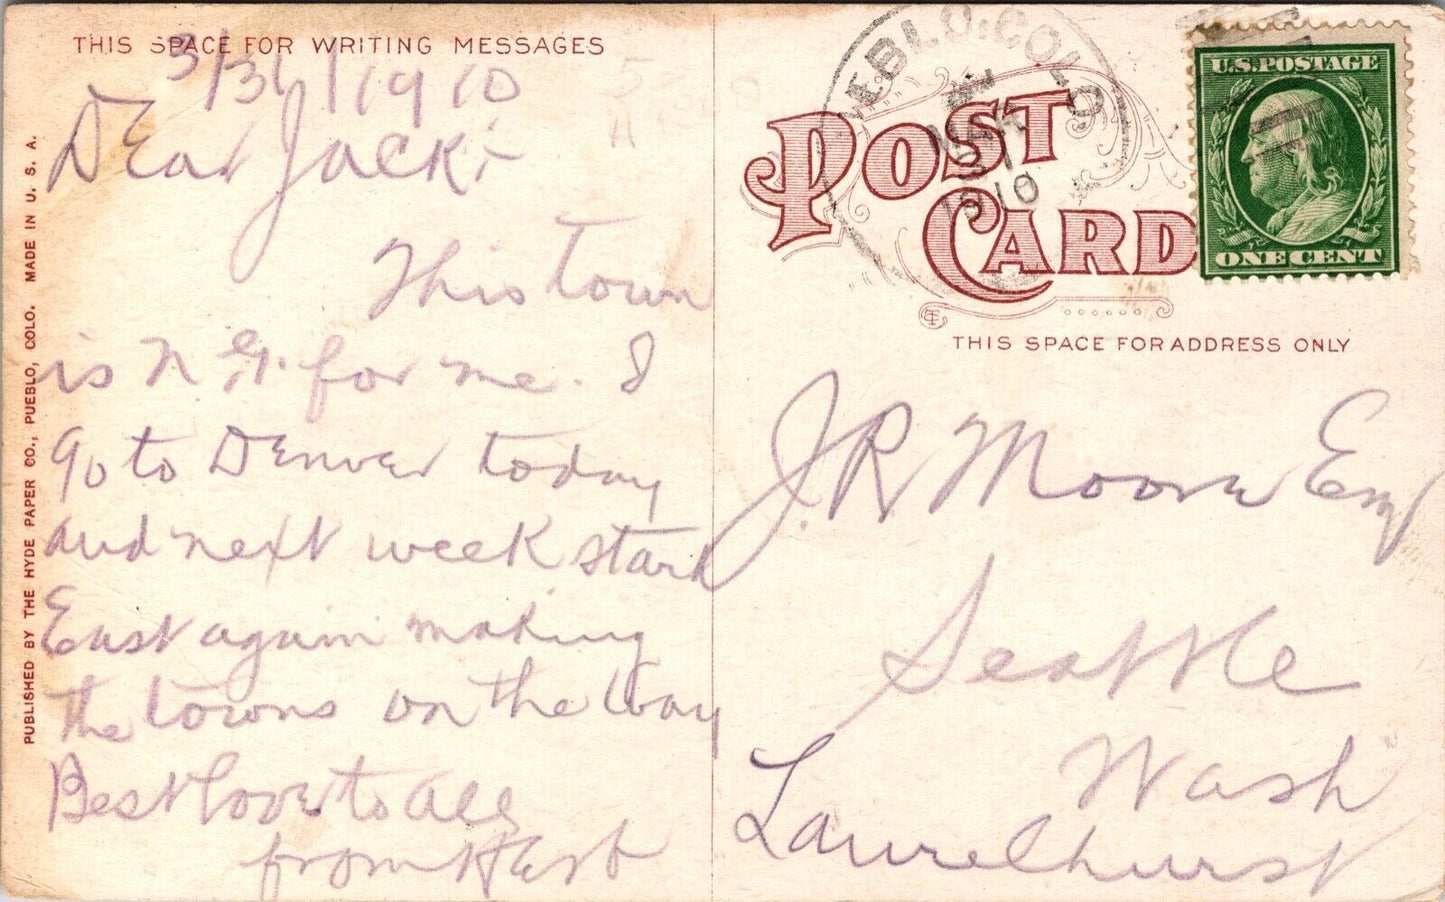 THIS SPACE FOR WRITING MESSAGES
3/31/1910
Dear Jack:-
This town
is N.G. for me. I
go to Denver today
and next week start
East again making
the towns on the way
Best love to all
from
PUBLISHED BY THE HYDE PAPER CO., PUEBLO, COLO. MADE IN U. S. A.
PUEBLO, COLO.
MAR
31
1910
POST
CARD
U.S. POSTAGE
ONE CENT
THIS SPACE FOR ADDRESS ONLY
J. R. Moore Esq
Seattle
Wash
Laurelhurst